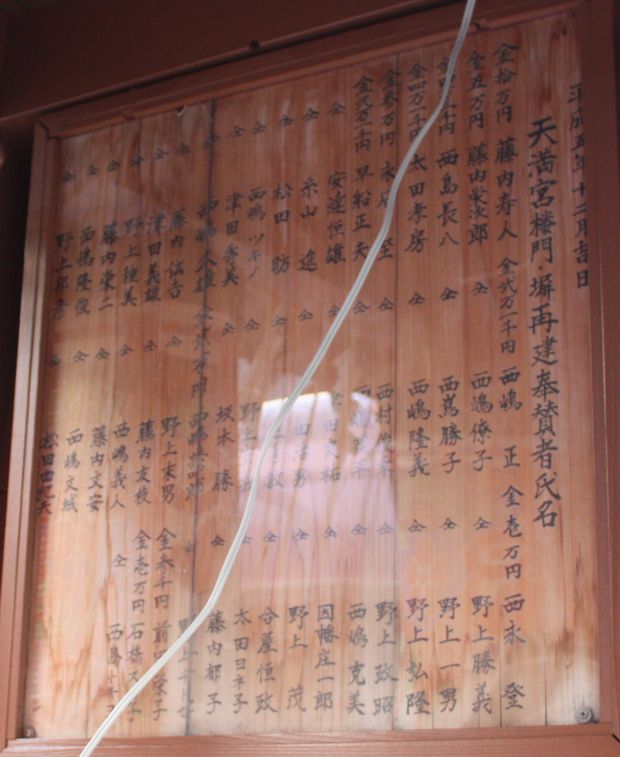 平成五年十二月吉日
天満宮楼門・塀再建奉賛者氏名
金拾万円 藤内寿人
金五万円 藤内栄次郎
西島長八
金四万二千円 太田孝房
金参万円
金弐万二千円 早船正夫
仝 安達恒雄
仝 糸山進
仝 松田昉
仝 西嶋ツキノ
仝 津田秀美
仝 西嶋久雄
仝 藤内信吉
仝 津田義雄
仝 野上種美
仝 藤内栄二
仝 西嶋隆俊
仝 野上邦彦
金弐万一千円 西嶋正
仝 西嶋僚子
仝 西嶌勝子
仝 西嶋隆義
仝 坂本勝
金弐万円
仝 野上末男
仝 藤内友枝
仝 西嶋義人
仝 藤内文安
仝 西嶋文絨
仝 松田由紀夫
金壱万円 西永登
仝 野上勝義
仝 野上一男
仝 野上弘隆
仝 野上政昭
仝 西嶋克美
仝 因幡庄一郎
仝 野上茂
仝 合屋恒政
仝 太田ヨネ子
仝 藤内郁子
仝
金参千円 前田栄子
金壱万円
仝